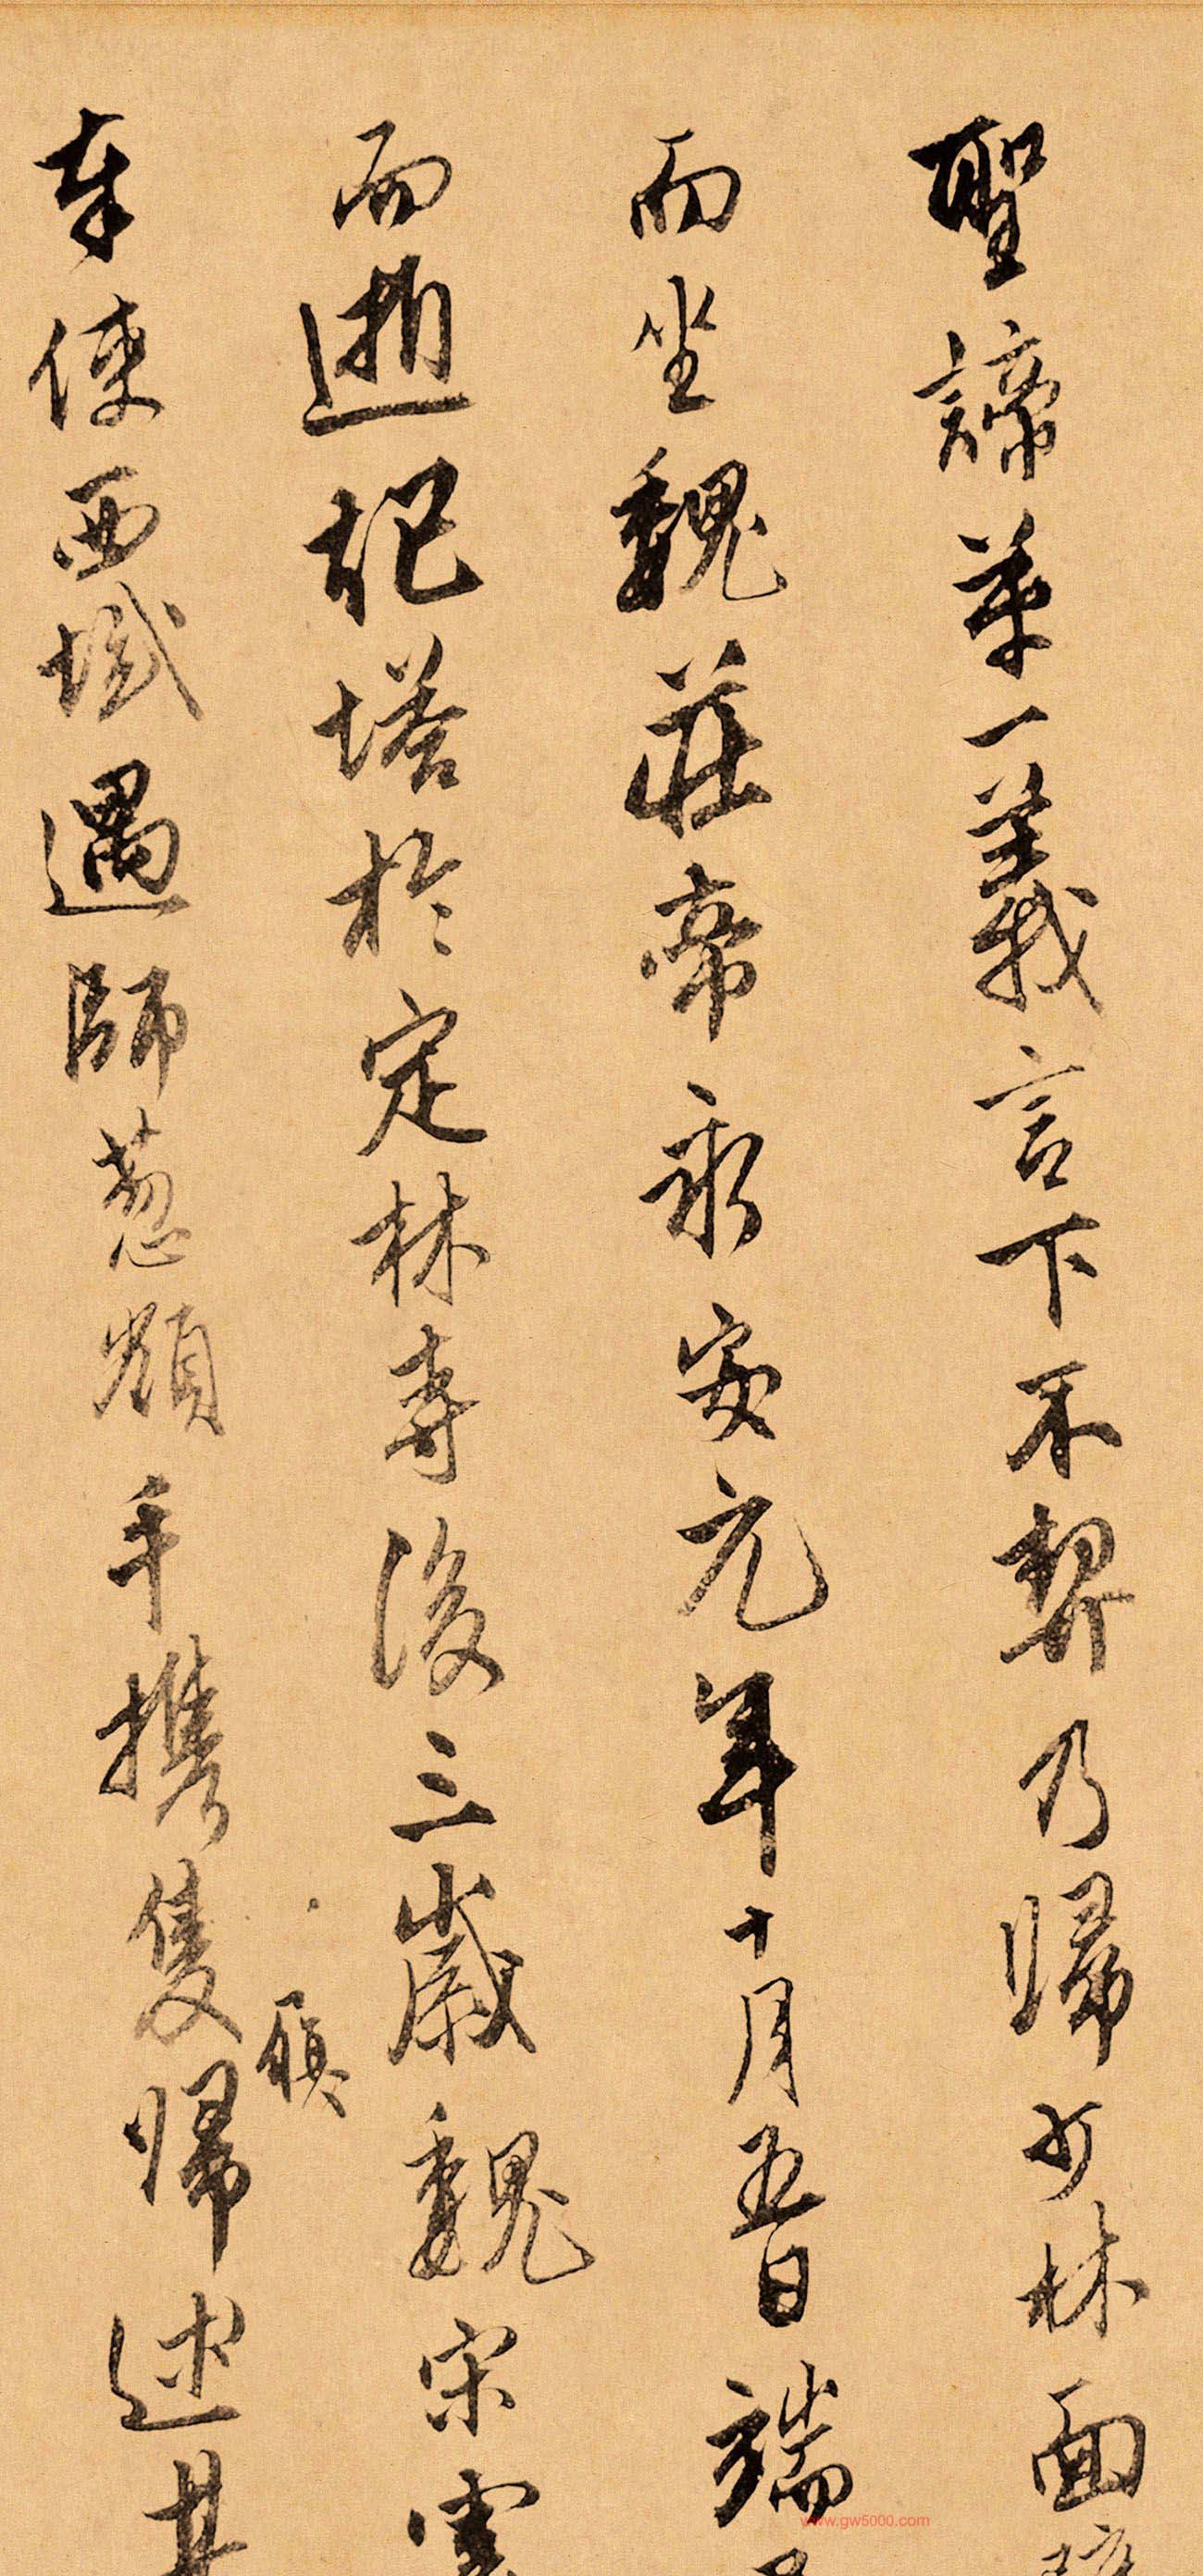 聖諦第一義言下不契乃歸少林面
而坐魏莊帝永安元年十月五日端
而逝起塔於定林寺後三歲魏宋雲
履
奉使西域遇師葱嶺手携隻歸述其
www.gw5000.com